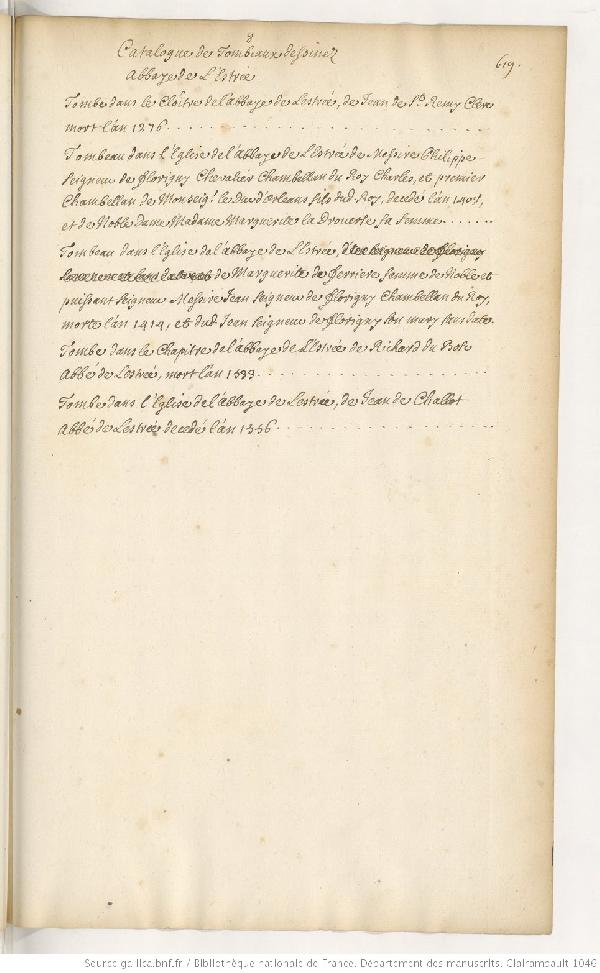 8
Catalogue de Tombeaux dessinez
619.
Abbaye de L'Estrée
Tombe dans le Cloistre de l'abbaye de Lestrée, de Jean de St Remy Clerc
mort l'an 1276
Tombeau dans l'Eglise de l'abbaye de L'Estrée de Messire Philippe
Seigneur de Florigny Chevalier Chambellan du Roy Charles, et premier
Chambellan de Monseigr le Duc d'Orleans fils dud. Roy, decedé l'an
et de Noble Dame Madame Marguerite la Drouerte sa femme
Tombeau dans l'Eglise de l'abbaye de L'Estrée,
de Marguerite de Ferriere femme de Noble et
puissant Seigneur Messire Jean Seigneur de Florigny Chambellan du Roy,
morte l'an 1414, et dud. Jean Seigneur de Florigny son mary sans date.
Tombe dans le Chapitre de l'abbaye de L'Estrée de Richard du
Abbé de Lestrée, mort l'an
Tombe dans l'Eglise de l'abbaye de Lestrée, de Jean de Challot
Abbé de Lestrée decedé l'an 1356
Source gallica.bnf.fr / Bibliothèque nationale de France. Département des manuscrits. Clairambault 1046